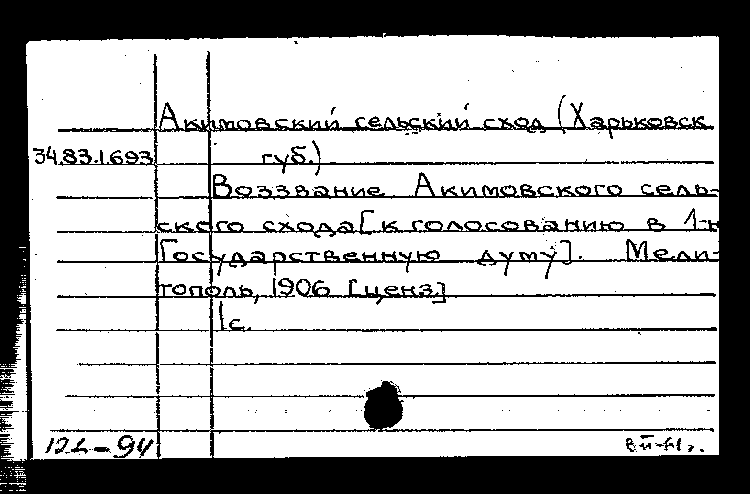 Акимовский сельский сход (Харьковск
34.83.1.693 губ.)
Воззвание Акимовского сель-
ского схода [к голосованию в 1-ю
Государственную думу]. Мели-
тополь, 1906 [ценз.]
1с.
122-94